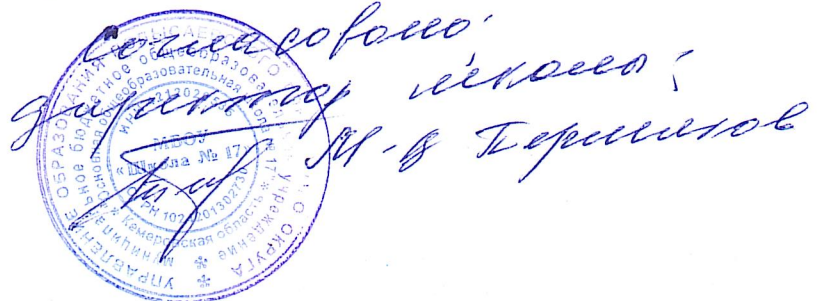 Согласовано:
директор школы:
М.В Першаков
УПРАВЛЕНИЕ ОБРАЗОВАНИЯ ОКРУГА
муниципальное бюджетное общеобразовательное учреждение
"Основная общеобразовательная школа № 17"
Кемеровская область
ИНН
ОГРН
МБОУ
«Школа № 17»